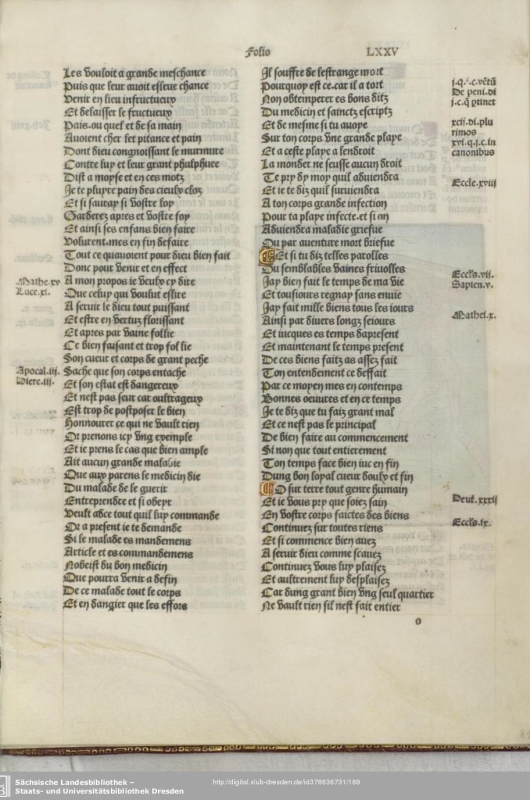 Folio LXXV
Les vouloit a grande meschance
Puis que leur avoit esleue chance
Venir en lieu infructueux
Et delaisser le fructueux
Pais ou quel et de sa main
Avoient cher sel pitance et pain
Dont dieu congnoissant le murmure
Contre luy et leur grant
Dist a moyse et en ces motz
Je te pluyre pain des cieulx cloz
Et si sauray si vostre loy
Garderez apres et vostre foy
Et ainsi ses enfans bien faire
Volurent mes en fin deffaire
Tout ce quavoient pour dieu bien fait
Donc pour venir et en effect
A mon propos ie veulx cy dire
Que celuy qui voulut eslire
A servir le dieu tout puissant
Et estre en vertuz florissant
Et apres par vaine follie
Ce bien faisant et trop follie
Son cueur et corps de grant peche
Sache que son corps entache
Et son estat est dangereux
Et nest pas seur car oultrageux
Est trop de postposer le bien
Honnourer ce qui ne vault rien
Or prenons icy ung exemple
Et ie prens le cas que bien ample
Ait aucun grande maladie
Que aux parens le medicin die
Du malade de le guerir
Entreprendre et si obeyr
Veult adce tout quil luy commande
Or a present ie te demande
Si le malade es mandemens
Article et es commandemens
Nobeist du bon medicin
Que pourra venir a defin
De ce malade tout le corps
Et en dangier que les effors
Mathe.xv
Luce.xi.
Apocal.iij.
Hiere.iij.
Il souffre de lestrange mort
Pourquoy est ce.car il a tort
Non obtemperer es bons ditz
Du medicin et sainctz escriptz
Et de mesme si tu avoye
Sur ton corps une grande playe
Et a ceste playe a lendroit
La monder ne seusse aucun droit
Te pry dy moy quil adviendra
Et ie te diz quil surviendra
A ton corps grande infection
Pour ta playe infecte.et si on
Adviendra maladie griefue
Ou par aventure mort briefue
Et si tu diz telles parolles
Ou semblables vaines frivolles
Jay bien fait le temps de ma vie
Et tousiours regnay sans envie
Jay fait mille biens tous les iours
Ainsi par divers longz seiours
Et iucques es temps dapresent
Et maintenant le temps present
De ces biens faitz as assez fait
Ton entendement ce deffait
Par ce moyen mes en contemps
Bonnes oeuvres et en ce temps
Je te diz que tu faiz grant mal
Et ce nest pas le principal
De bien faire au commencement
Si non que tout entierement
Ton temps face bien iuc en fin
Dung bon loyal cueur doulx et fin
O sur terre tout genre humain
Et ie vous pry que soiez sain
En vostre corps faictes des biens
Continuez sur toutes riens
Et si commence bien avez
A servir dieu comme scavez
Continuez vous luy plaisez
Et aultrement luy desplaisez
Car dung grant bien ung seul quartier
Ne vault rien sil nest fait entier
o
De peni.di
xcii.di.plu
rimos
xvi.q.i.c.in
canonibus
Eccle.xvii
Eccls.vii.
Sapien.v.
Mathei.x.
Deut.xxxij
Eccls.ix.
Sächsische Landesbibliothek –
Staats- und Universitätsbibliothek Dresden
http://digital.slub-dresden.de/id378636731/169